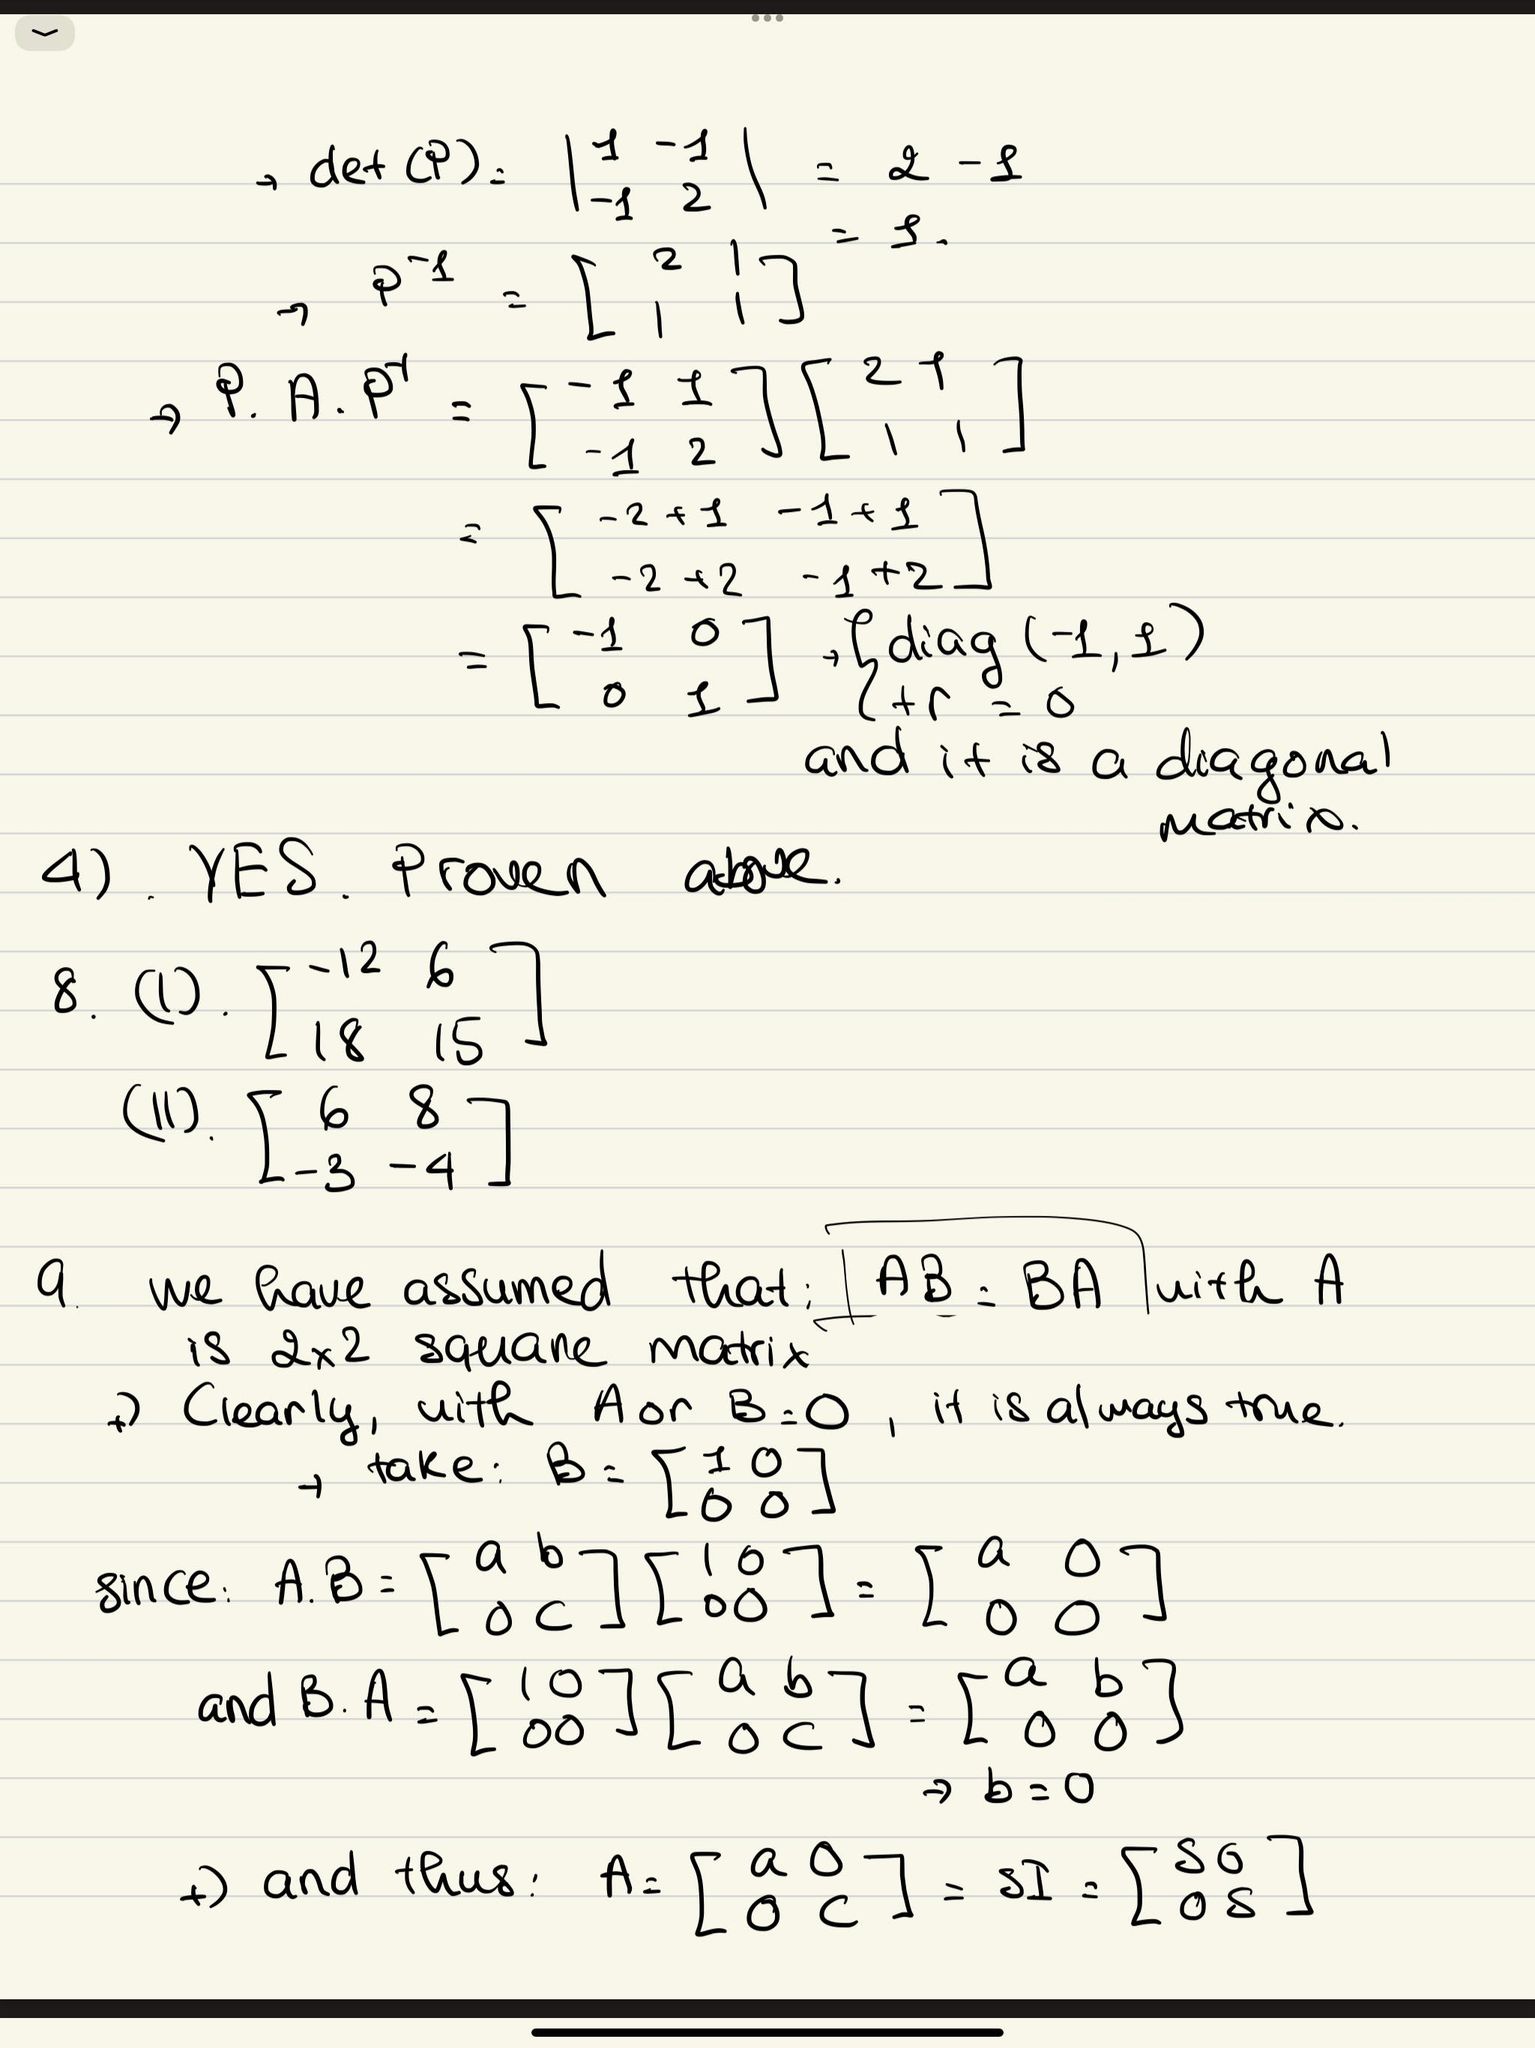 → det (P) = | 1 -1 | = 2 - 1
| -1 2 |
= 1.
→ P⁻¹ = [ 2 1 ]
[ 1 1 ]
→ P. A. P⁻¹ = [ -1 1 ] [ 2 1 ]
[ -1 2 ] [ 1 1 ]
= [ -2 + 1 -1 + 1 ]
[ -2 + 2 -1 + 2 ]
= [ -1 0 ] → { diag (-1, 1)
[ 0 1 ] { tr = 0
and it is a diagonal
matrix.
4). YES. Proven above.
8. (I). [ -12 6 ]
[ 18 15 ]
(II). [ 6 8 ]
[ -3 -4 ]
9. we have assumed that: | AB = BA | with A
is 2x2 square matrix
+) Clearly, with A or B = 0, it is always true.
→ take: B = [ 1 0 ]
[ 0 0 ]
since: A.B = [ a b ] [ 1 0 ] = [ a 0 ]
[ 0 c ] [ 0 0 ] [ 0 0 ]
and B.A = [ 1 0 ] [ a b ] = [ a b ]
[ 0 0 ] [ 0 c ] [ 0 0 ]
→ b = 0
+) and thus: A = [ a 0 ] = sI = [ s 0 ]
[ 0 c ] [ 0 s ]